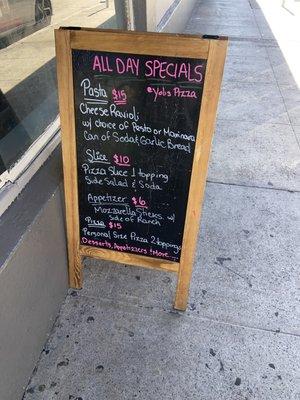 ALL DAY SPECIALS
@Yabs Pizza
Pasta $15
Cheese Ravioli
w/ choice of Pesto or Marinara
Can of Soda & Garlic Bread
Slice $10
Pizza Slice 1 topping
Side Salad & Soda
Appetizer $6
Mozzarella Sticks w/
side of Ranch
Pizza $15
Personal Size Pizza 2 toppings
Desserts, Appetizers + More...